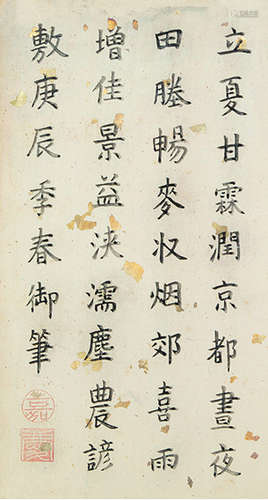 立夏甘霖潤京都晝夜
田塍暢麥収烟郊喜雨
增佳景益浹濡塵農諺
敷庚辰季春御筆
嘉